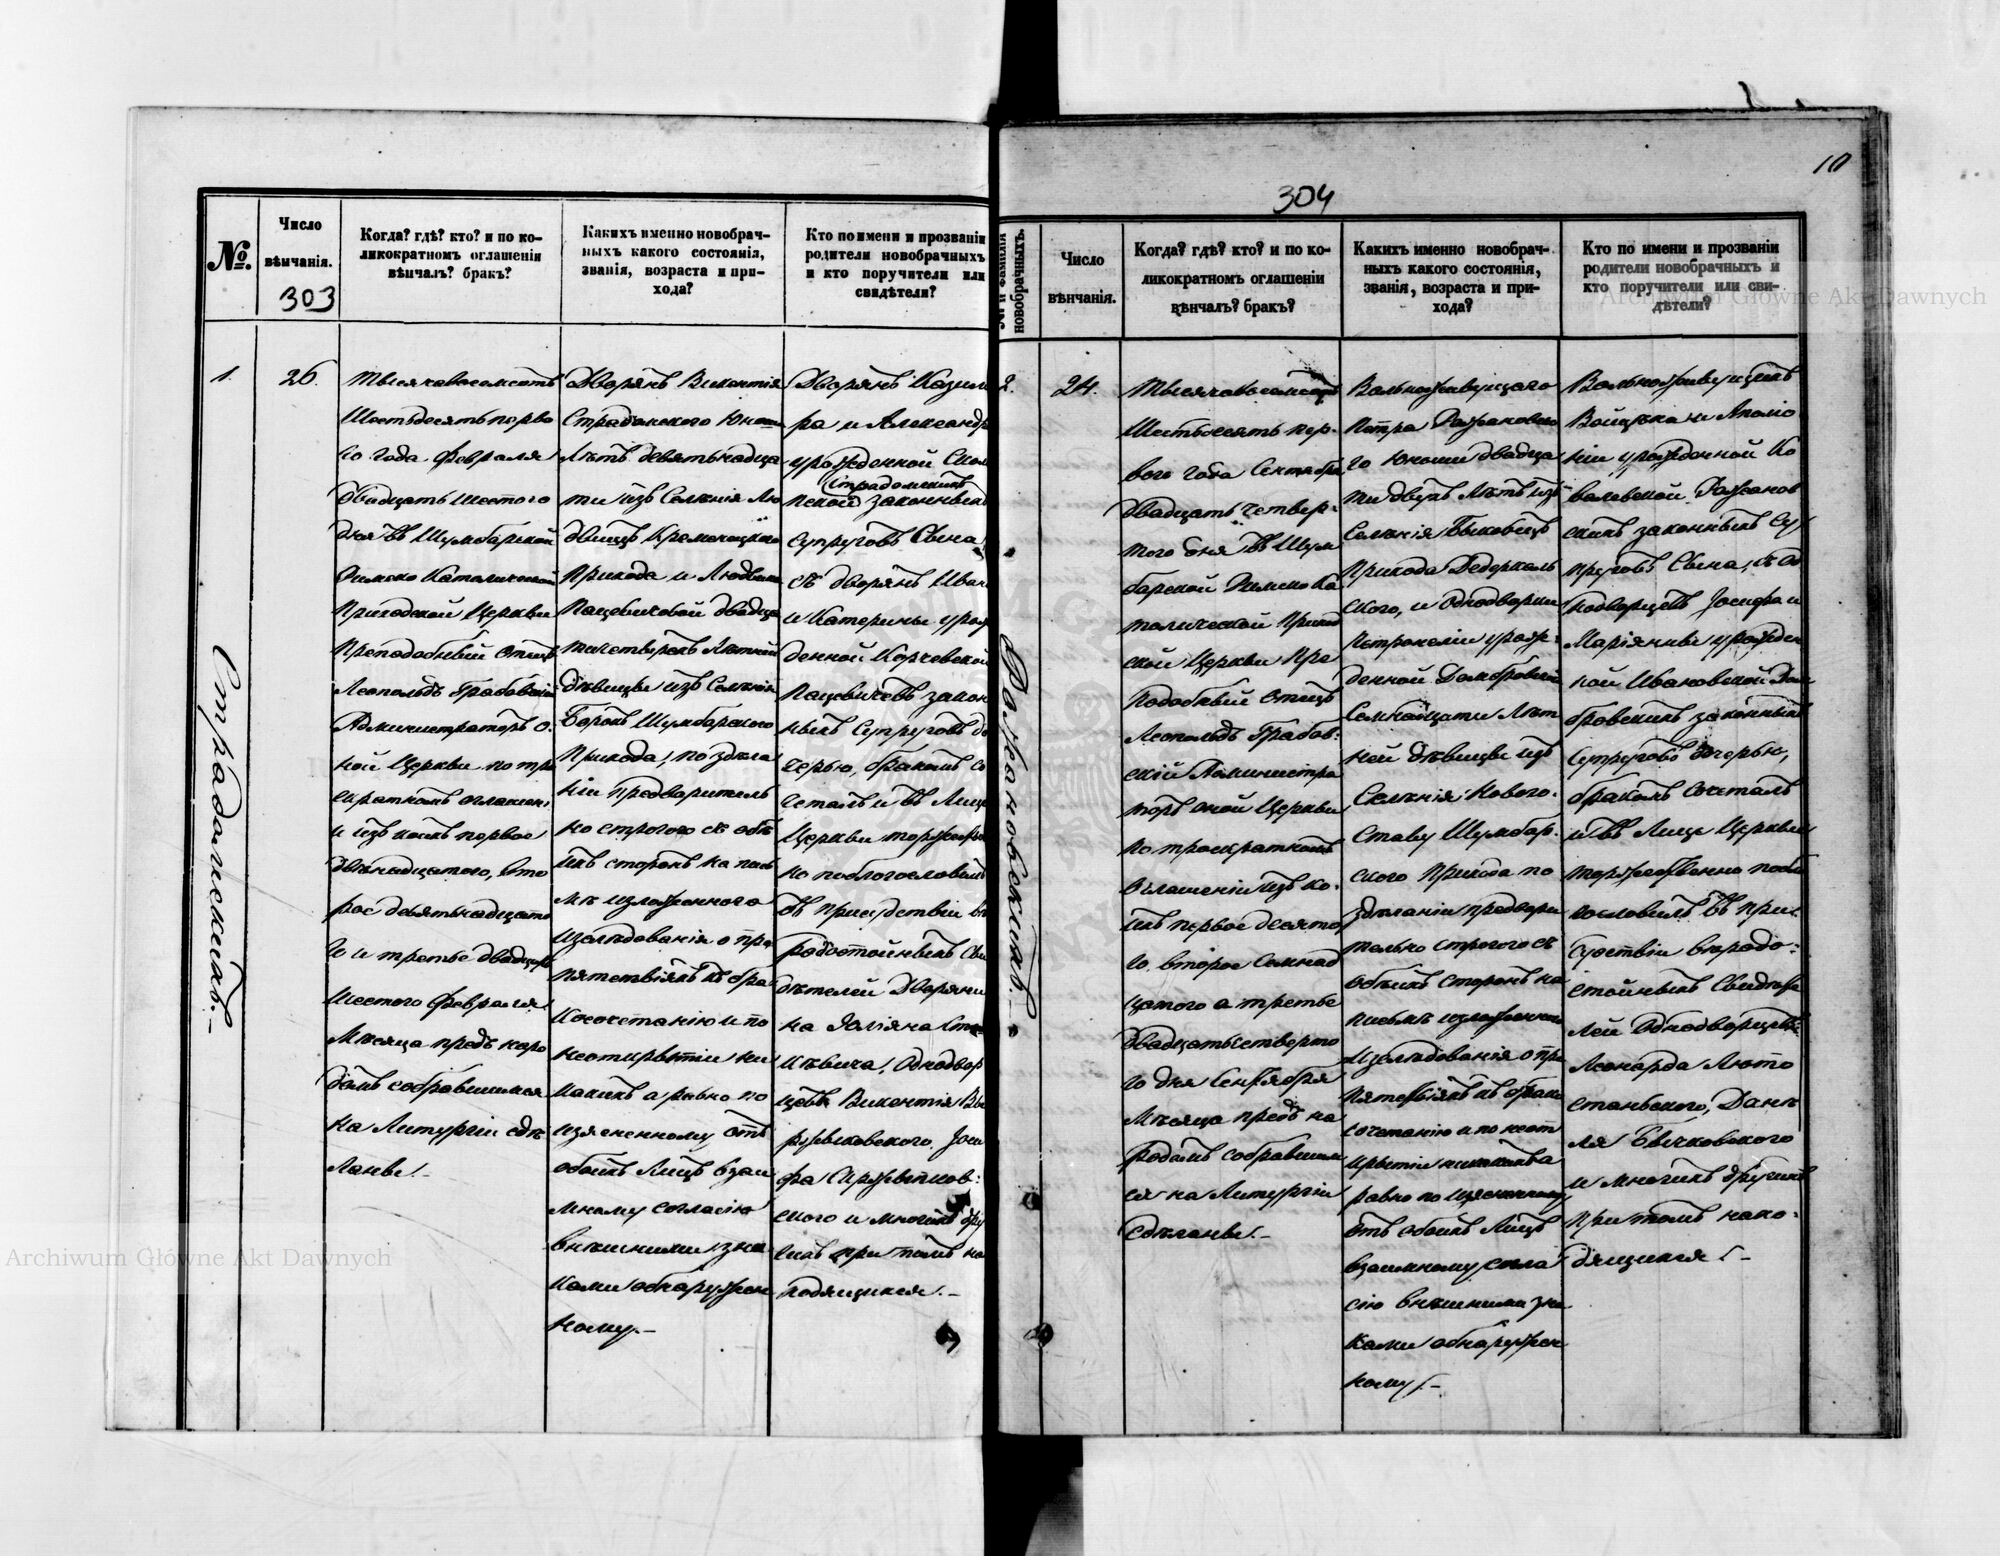 10
№.
Число
вѣнчанія.
303
Когда? гдѣ? кто? и по ко-
ликократномъ оглашеніи
вѣнчалъ? бракъ?
Какихъ именно новобрач-
ныхъ какого состоянія,
званія, возраста и при-
хода?
Кто по имени и прозванію
родители новобрачныхъ
и кто поручители или
свидѣтели?
1.
26.
Тысяча восемсотъ
Шестьдесятъ перва
го года Февраля
двадцать шестого
дня въ Шумбарской
Римско Католической
Приходской Церкви
Преподобный Отецъ
Леопольдъ Грабовскій
Администраторъ о
ной Церкви по тро
екратномъ оглашеніи
и изъ коихъ первое
двѣнадцатого, вто
рое девятьнадцато
го и третье двадцать
шестого Февраля
Мѣсяца предъ наро
домъ собравшимся
на Литургіи сдѣ
ланы.-
Дворянъ Викентія
Страдомского Юношу
Лѣтъ девятьнадца
ти изъ Селенія Лю
Кременецкого
Прихода и Людвику
Пацевичовой двадца
тичетырехъ Лѣтней
дѣвицы изъ Селенія
Борокъ Шумбарского
Прихода, по здѣла
ніи предваритель
но строгого съ обѣ
ихъ сторонъ на пись
мѣ изложенного
изслѣдованія о пре
пятствіяхъ къ бра
косочетанію и по
неоткрытіи ни
какихъ а равно по
изясненному отъ
обоихъ Лицъ взаи
мному согласію
внѣшними зна
ками обнаружен
ному.-
Дворянъ Казими
ра и Александр
урожденной Ском
Страдомскихъ
пской законныхъ
Супруговъ Сына
съ дворянъ Иван
и Катерины урож
денной Корчевской
Пацевичевъ закон
ныхъ Супруговъ до
черью, бракомъ со
четалъ и въ Лице
Церкви торжествен
но поблогословилъ
въ присудствіи вѣ
родостойныхъ Сви
дѣтелей Дворяни
на Юліяна Ста
цѣвича, Однодвор
цевъ Викентія Вы
ржыковского, Јоси
фа
ского и многихъ дру
гихъ при томъ на
ходящихся.-
Страдомскихъ.-
304
№ и фамилія
новобрачныхъ.
Число
вѣнчанія.
Когда? гдѣ? кто? и по ко-
ликократномъ оглашеніи
вѣнчалъ? бракъ?
Какихъ именно новобрач-
ныхъ какого состоянія,
званія, возраста и при-
хода?
Кто по имени и прозванію
родители новобрачныхъ и
кто поручители или сви-
дѣтели?
2.
24.
Тысяча восемсотъ
Шестьдесятъ пер-
вого года Сентября
двадцать четвер-
того дня въ Шум
барской Римско Ка
толической Приход
ской Церкви Пре
подобный Отецъ
Леопольдъ Грабов-
скій Администра
торъ оной Церкви
по троекратномъ
оглашеніи изъ ко-
ихъ первое десято
го, второе Семнад
цатого а третье
двадцатьчетверто
го дня Сентября
Мѣсяца предъ на
родомъ собравшим
ся на Литургіи
сдѣланы.-
Вольноживущаго
Петра Рожановско
го Юноши двадца
ти двухъ Лѣтъ изъ
Селенія Быковецъ
Прихода Дедеркаль
ского, и Однодворки
Петронеліи урож-
денной Домбровской
Семнайцати Лѣт
ней дѣвицы изъ
Селенія Нового-
Ставу Шумбар-
ского Прихода по
здѣланіи предвари
тельно строгого съ
обѣихъ Сторонъ на
письмѣ изложенного
Изслѣдованія о пре
пятствіяхъ къ брако
сочетанію и по неот
крытіи никакихъ а
равно по изясненному
отъ обоихъ Лицъ
взаимному согла
сію внѣшними зна
ками обнаружен
ному.-
Вольноживущихъ
Войцѣха и Аполо
ніи урожденной Ко
валевской Рожанов
скихъ законныхъ Су
пруговъ Сына, съ Од
нодворцевъ Јосифа и
Маріянны урожден
ной Ивановской Дом
бровскихъ законныхъ
Супруговъ дочерью,
бракомъ сочеталъ
и въ Лице Церкви
торжественно побл
гословилъ въ при-
судствіи вѣродо-
стойныхъ Свидѣте
лей Однодворцевъ
Леонарда Люто
станьского, Данѣ
ля Бычковского
и многихъ другихъ
при томъ нахо-
дящихся.-
Рожановскихъ.-
Archiwum Główne Akt Dawnych
Archiwum Główne Akt Dawnych